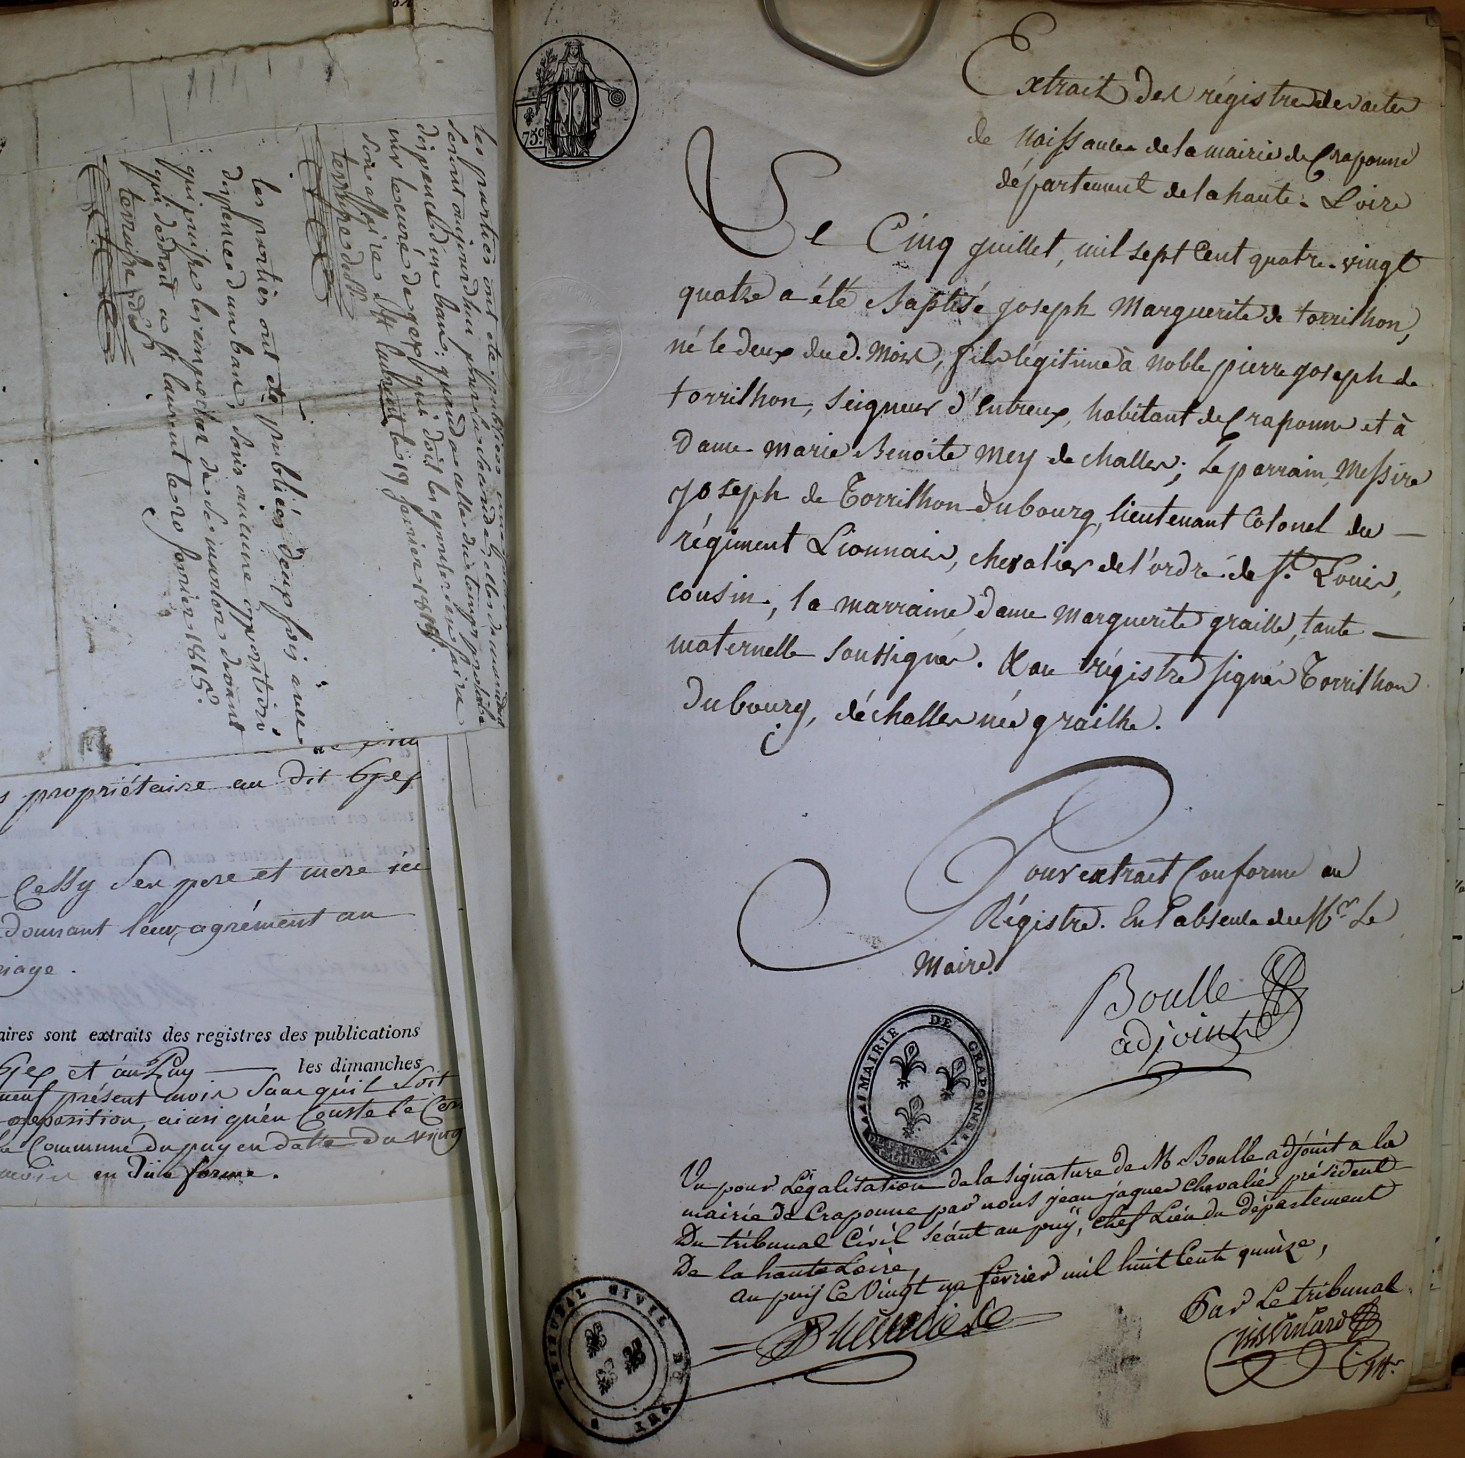 Extrait des régistres des actes
de Naissance de la mairie de Craponne
département de la haute-Loire
Le Cinq juillet, mil sept Cent quatre-vingt
quatre a été Baptisé joseph Marguerite de torrilhon,
né le deux du d. Mois, fils légitime à Noble pierre joseph de
torrilhon, Seigneur d'Entreux, habitant de Craponne et à
Dame marie Benoite Mey de challes; Le parrain, Messire
joseph de Torrilhon-dubourg, lieutenant Colonel du
régiment Lionnais, chevalier de l'ordre de St. Louis,
Cousin, la marraine dame Marguerite graille, tante
maternelle Soussignés. & au régistre signés Torrilhon
dubourg, déchalles née grailhe.
Pour extrait Conforme au
Régistre. En l'absence de Mr. Le
Maire.
Boulle
adjoint
MAIRIE DE CRAPONNE
Vu pour Légalisation de la signature de M Boulle adjoint a la
mairie de Craponne par nous jean jaques chevalier président
Du tribunal Civil séant au puy, chef Lieu du département
De la haute Loire,
au puy Ce Vingt un février mil huit Cent quinze,
Par Le tribunal
TRIBUNAL CIVIL DU PUY
75c.
les parties ont été publiées deux fois avec
dispence d'un ban, sans aucune opposition
qui puisse les empecher de se marier devant
qui de droit a St laurent le 20 janvier 1815.
terrasse
St laurent le 19 janvier 1815.
propriétaire au dit Gex
Cessy Ses pere et mere ici
donnant leur agrément au
riage.
aires sont extraits des registres des publications
Gex et au Puy les dimanches
neuf présent mois sans qu'il soit
opposition, ainsi qu'en Conste le Cer
la Commune du puy en date du vingt
en due forme.